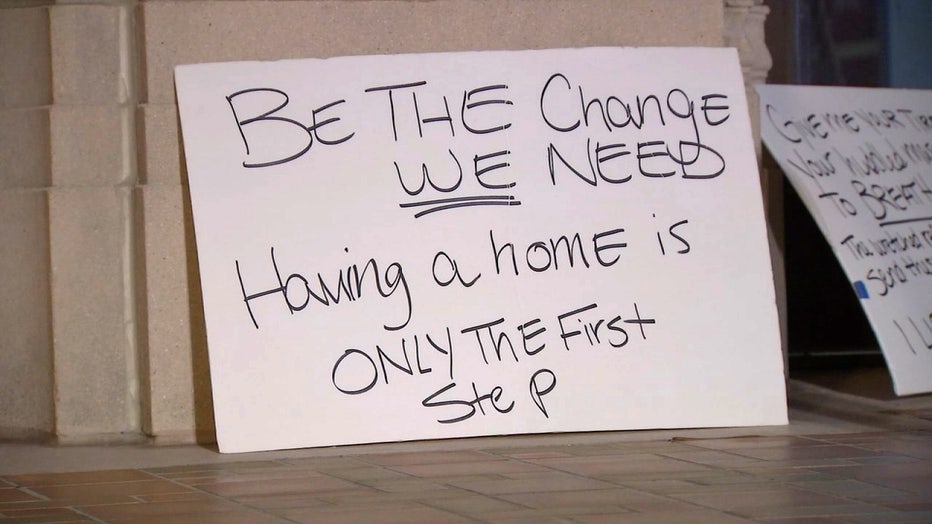 BE THE Change
WE NEED
Having a home is
ONLY THE First
Step
GIVE ME YOUR
Your huddled
TO
The wretched
Send
I